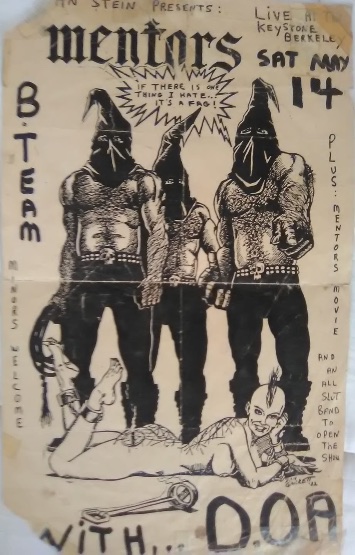 STEIN PRESENTS:
LIVE AT THE
KEYSTONE
BERKELEY
mentors
SAT MAY
14
IF THERE IS ONE
THING I HATE...
IT'S A FAG!
B.TEAM
MINORS WELCOME
PLUS: MENTORS MOVIE
AND
AN
ALL
SLUT
BAND
TO
OPEN
THE
SHOW
WITH... D.O.A